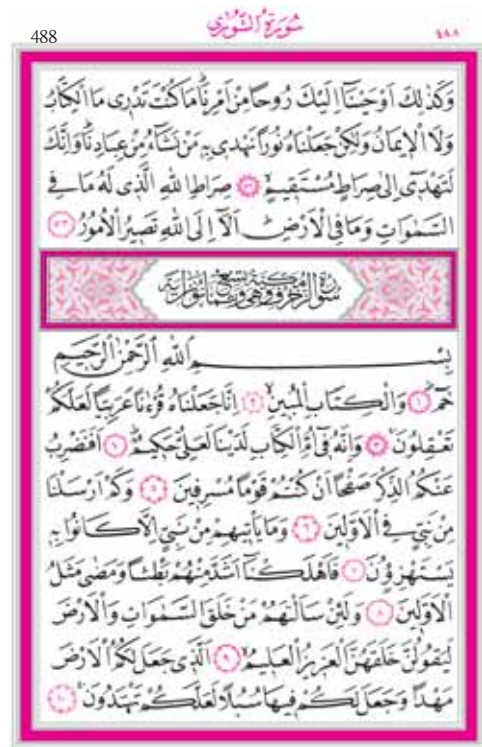 488
سُورَةُ الشُّورٰى
٤٨٨
وَكَذٰلِكَ اَوْحَيْنَٓا اِلَيْكَ رُوحًا مِنْ اَمْرِنَاۜ مَا كُنْتَ تَدْر۪ي مَا الْكِتَابُ
وَلَا الْا۪يمَانُ وَلٰكِنْ جَعَلْنَاهُ نُورًا نَهْد۪ي بِه۪ مَنْ نَشَٓاءُ مِنْ عِبَادِنَاۜ وَاِنَّكَ
لَتَهْد۪ٓي اِلٰى صِرَاطٍ مُسْتَق۪يمٍۙ ٥٢ صِرَاطِ اللّٰهِ الَّذ۪ي لَهُ مَا فِي
السَّمٰوَاتِ وَمَا فِي الْاَرْضِۜ اَلَٓا اِلَى اللّٰهِ تَص۪يرُ الْاُمُورُ ٥٣
سُورَةُ الزُّخْرُفِ مَكِّيَّةٌ وَهِيَ تِسْعٌ وَثَمَانُونَ اٰيَةً
بِسْمِ اللّٰهِ الرَّحْمٰنِ الرَّح۪يمِ
حٰمٓۜ ١ وَالْكِتَابِ الْمُب۪ينِۙ ٢ اِنَّا جَعَلْنَاهُ قُرْءٰنًا عَرَبِيًّا لَعَلَّكُمْ
تَعْقِلُونَۚ ٣ وَاِنَّهُ ف۪ٓي اُمِّ الْكِتَابِ لَدَيْنَا لَعَلِيٌّ حَك۪يمٌۜ ٤ اَفَنَضْرِبُ
عَنْكُمُ الذِّكْرَ صَفْحًا اَنْ كُنْتُمْ قَوْمًا مُسْرِف۪ينَ ٥ وَكَمْ اَرْسَلْنَا
مِنْ نَبِيٍّ فِي الْاَوَّل۪ينَ ٦ وَمَا يَأْت۪يهِمْ مِنْ نَبِيٍّ اِلَّا كَانُوا بِه۪
يَسْتَهْزِؤُ۫نَ ٧ فَاَهْلَكْنَٓا اَشَدَّ مِنْهُمْ بَطْشًا وَمَضٰى مَثَلُ
الْاَوَّل۪ينَ ٨ وَلَئِنْ سَاَلْتَهُمْ مَنْ خَلَقَ السَّمٰوَاتِ وَالْاَرْضَ
لَيَقُولُنَّ خَلَقَهُنَّ الْعَز۪يزُ الْعَل۪يمُۙ ٩ اَلَّذ۪ي جَعَلَ لَكُمُ الْاَرْضَ
مَهْدًا وَجَعَلَ لَكُمْ ف۪يهَا سُبُلًا لَعَلَّكُمْ تَهْتَدُونَۚ ١٠